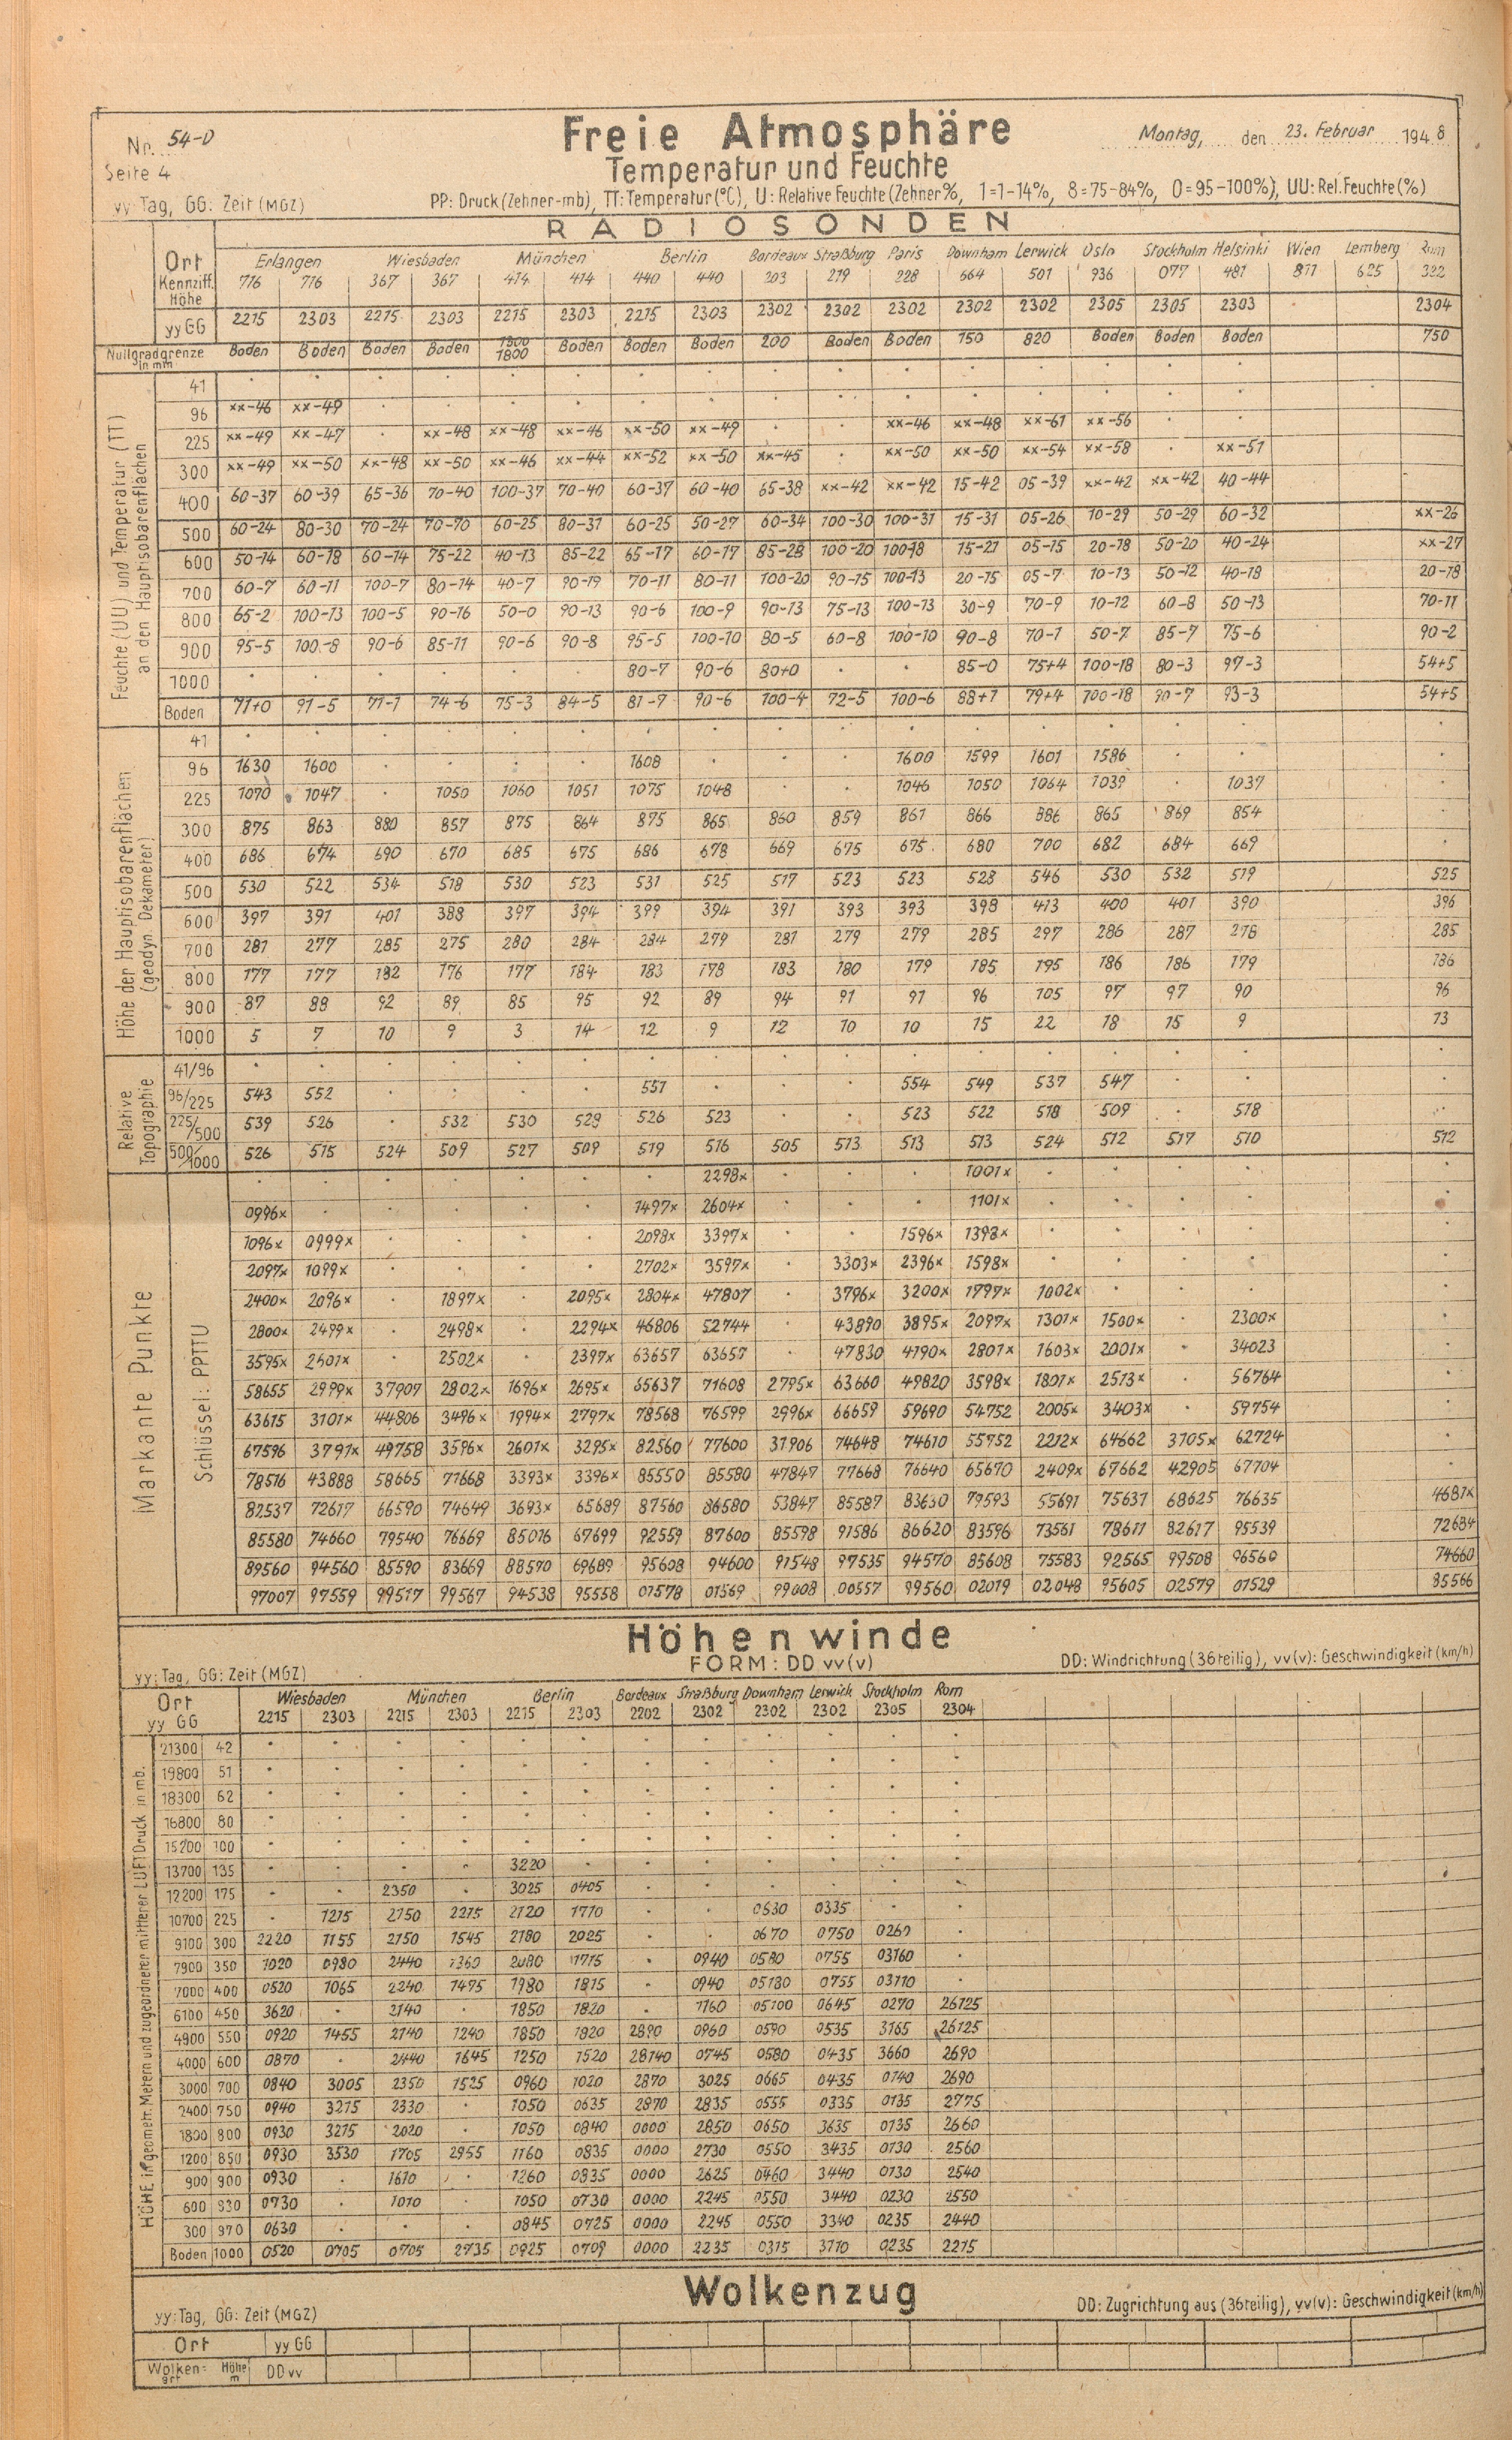 Nr. 54-D
Freie Atmosphäre
Montag, den 23. Februar 1948
Seite 4
Temperatur und Feuchte
yy: Tag, GG: Zeit (MGZ)
PP: Druck (Zehner-mb), TT: Temperatur (°C), U: Relative Feuchte (Zehner %, 1=1-14%, 8=75-84%, 0=95-100%), UU: Rel. Feuchte (%)
RADIOSONDEN
Ort Erlangen Wiesbaden München Berlin Bordeaux Straßburg Paris Downham Lerwick Oslo Stockholm Helsinki Wien Lemberg Rom
Kennziff. 716 716 367 367 414 414 440 440 203 219 228 664 501 936 077 481 811 625 322
Höhe
yy GG 2215 2303 2215 2303 2215 2303 2215 2303 2302 2302 2302 2302 2302 2305 2305 2303 2304
Nullgradgrenze in mm Boden Boden Boden Boden 1300 1800 Boden Boden Boden 200 Boden Boden 150 820 Boden Boden Boden 750
Feuchte (UU) und Temperatur (TT) an den Hauptisobarenflächen
41
96 xx-46 xx-49
225 xx-49 xx-47 xx-48 xx-48 xx-46 xx-50 xx-49 xx-46 xx-48 xx-61 xx-56
300 xx-49 xx-50 xx-48 xx-50 xx-46 xx-44 xx-52 xx-50 xx-45 xx-50 xx-50 xx-54 xx-58 xx-51
400 60-37 60-39 65-36 70-40 100-37 70-40 60-37 60-40 65-38 xx-42 xx-42 15-42 05-39 xx-42 xx-42 40-44
500 60-24 80-30 70-24 70-70 60-25 80-31 60-25 50-27 60-34 100-30 100-31 15-31 05-26 10-29 50-29 60-32 xx-26
600 50-14 60-18 60-14 75-22 40-13 85-22 65-17 60-17 85-28 100-20 100-18 15-21 05-15 20-18 50-20 40-24 xx-27
700 60-7 60-11 100-7 80-14 40-7 90-19 70-11 80-11 100-20 90-15 100-13 20-15 05-7 10-13 50-12 40-18 20-18
800 65-2 100-13 100-5 90-16 50-0 90-13 90-6 100-9 90-13 75-13 100-13 30-9 70-9 10-12 60-8 50-13 70-11
900 95-5 100-8 90-6 85-11 90-6 90-8 95-5 100-10 80-5 60-8 100-10 90-8 70-1 50-7 85-7 75-6 90-2
1000 80-7 90-6 80+0 85-0 75+4 100-18 80-3 97-3 54+5
Boden 71+0 91-5 71-1 74-6 75-3 84-5 81-7 90-6 100-4 72-5 100-6 88+1 79+4 100-18 90-7 93-3 54+5
Höhe der Hauptisobarenflächen (geodyn. Dekameter)
41
96 1630 1600 1608 1600 1599 1601 1586
225 1070 1047 1050 1060 1051 1075 1048 1046 1050 1064 1039 1037
300 875 863 880 857 875 864 875 865 860 859 861 866 886 865 869 854
400 686 674 690 670 685 675 686 678 669 675 675 680 700 682 684 669
500 530 522 534 518 530 523 531 525 517 523 523 528 546 530 532 519 525
600 397 391 401 388 397 394 399 394 391 393 393 398 413 400 401 390 396
700 281 277 285 275 280 284 284 279 281 279 279 285 297 286 287 278 285
800 177 177 182 176 177 184 183 178 183 180 179 185 195 186 186 179 186
900 87 88 92 89 85 95 92 89 94 91 91 96 105 97 97 90 96
1000 5 7 10 9 3 14 12 9 12 10 10 15 22 18 15 9 13
Relative Topographie
41/96
96/225 543 552 551 554 549 537 547
225/500 539 526 532 530 529 526 523 523 522 518 509 518
500/1000 526 515 524 509 527 509 519 516 505 513 513 513 524 512 517 510 512
Markante Punkte
Schlüssel: PPTTU
2298x 1001x
0996x 1497x 2604x 1101x
1096x 0999x 2098x 3397x 1596x 1398x
2097x 1099x 2702x 3597x 3303x 2396x 1598x
2400x 2096x 1897x 2095x 2804x 47807 3796x 3200x 1797x 1002x
2800x 2499x 2498x 2294x 46806 52744 43890 3895x 2097x 1301x 1500x 2300x
3595x 2601x 2502x 2397x 63657 63657 47830 4190x 2801x 1603x 2001x 34023
58655 2999x 37907 2802x 1696x 2695x 65637 71608 2795x 63660 49820 3598x 1801x 2513x 56764
63615 3101x 44806 3496x 1994x 2797x 78568 76599 2996x 66659 59690 54752 2005x 3403x 59754
67596 3791x 49758 3596x 2601x 3295x 82560 77600 31906 74648 74610 55752 2212x 64662 3705x 62724
78516 43888 58665 71668 3393x 3396x 85550 85580 47847 77668 76640 65670 2409x 67662 42905 67704
82537 72617 66590 74649 3693x 65689 87560 86580 53847 85587 83630 79593 55691 75631 68625 76635 4681x
85580 74660 79540 76669 85016 67699 92559 87600 85598 91586 86620 83596 73561 78611 82617 95539 72684
89560 94560 85590 83669 88570 69689 95608 94600 91548 97535 94570 85608 75583 92565 99508 96560 74660
97007 97559 99517 99567 94538 95558 01578 01569 99008 00557 99560 02019 02048 95605 02579 01529 85566
Höhenwinde
FORM: DD vv(v)
yy: Tag, GG: Zeit (MGZ)
DD: Windrichtung (36teilig), vv(v): Geschwindigkeit (km/h)
Ort Wiesbaden München Berlin Bordeaux Straßburg Downham Lerwick Stockholm Rom
yy GG 2215 2303 2215 2303 2215 2303 2202 2302 2302 2302 2305 2304
HÖHE in geometr. Metern und zugeordneter mittlerer LUFTDruck in mb.
21300 42
19800 51
18300 62
16800 80
15200 100
13700 135 3220
12200 175 2350 3025 0405
10700 225 1215 2150 2215 2120 1710 0630 0335
9100 300 2220 1155 2150 1545 2180 2025 0670 0750 0260
7900 350 1020 0980 2440 1360 2080 1715 0940 0580 0755 03160
7000 400 0520 1065 2240 1495 1980 1815 0940 05130 0755 03110
6100 450 3620 2140 1850 1820 1160 05100 0645 0270 26125
4900 550 0920 1455 2140 1240 1850 1820 2890 0960 0590 0535 3165 26125
4000 600 0870 2440 1645 1250 1520 28140 0745 0580 0435 3660 2690
3000 700 0840 3005 2350 1525 0960 1020 2870 3025 0665 0435 0140 2690
2400 750 0940 3215 2330 1050 0635 2870 2835 0555 0335 0135 2775
1800 800 0930 3215 2020 1050 0840 0000 2850 0650 3635 0135 2660
1200 850 0930 3530 1705 2955 1160 0835 0000 2730 0550 3435 0130 2560
900 900 0930 1610 1260 0835 0000 2625 0460 3440 0130 2540
600 930 0730 1010 1050 0730 0000 2245 0550 3440 0230 2550
300 970 0630 0845 0725 0000 2245 0550 3340 0235 2440
Boden 1000 0520 0705 0705 2735 0925 0709 0000 2235 0315 3110 0235 2215
Wolkenzug
yy: Tag, GG: Zeit (MGZ)
DD: Zugrichtung aus (36teilig), vv(v): Geschwindigkeit (km/h)
Ort yy GG
Wolken=art Höhe m DD vv